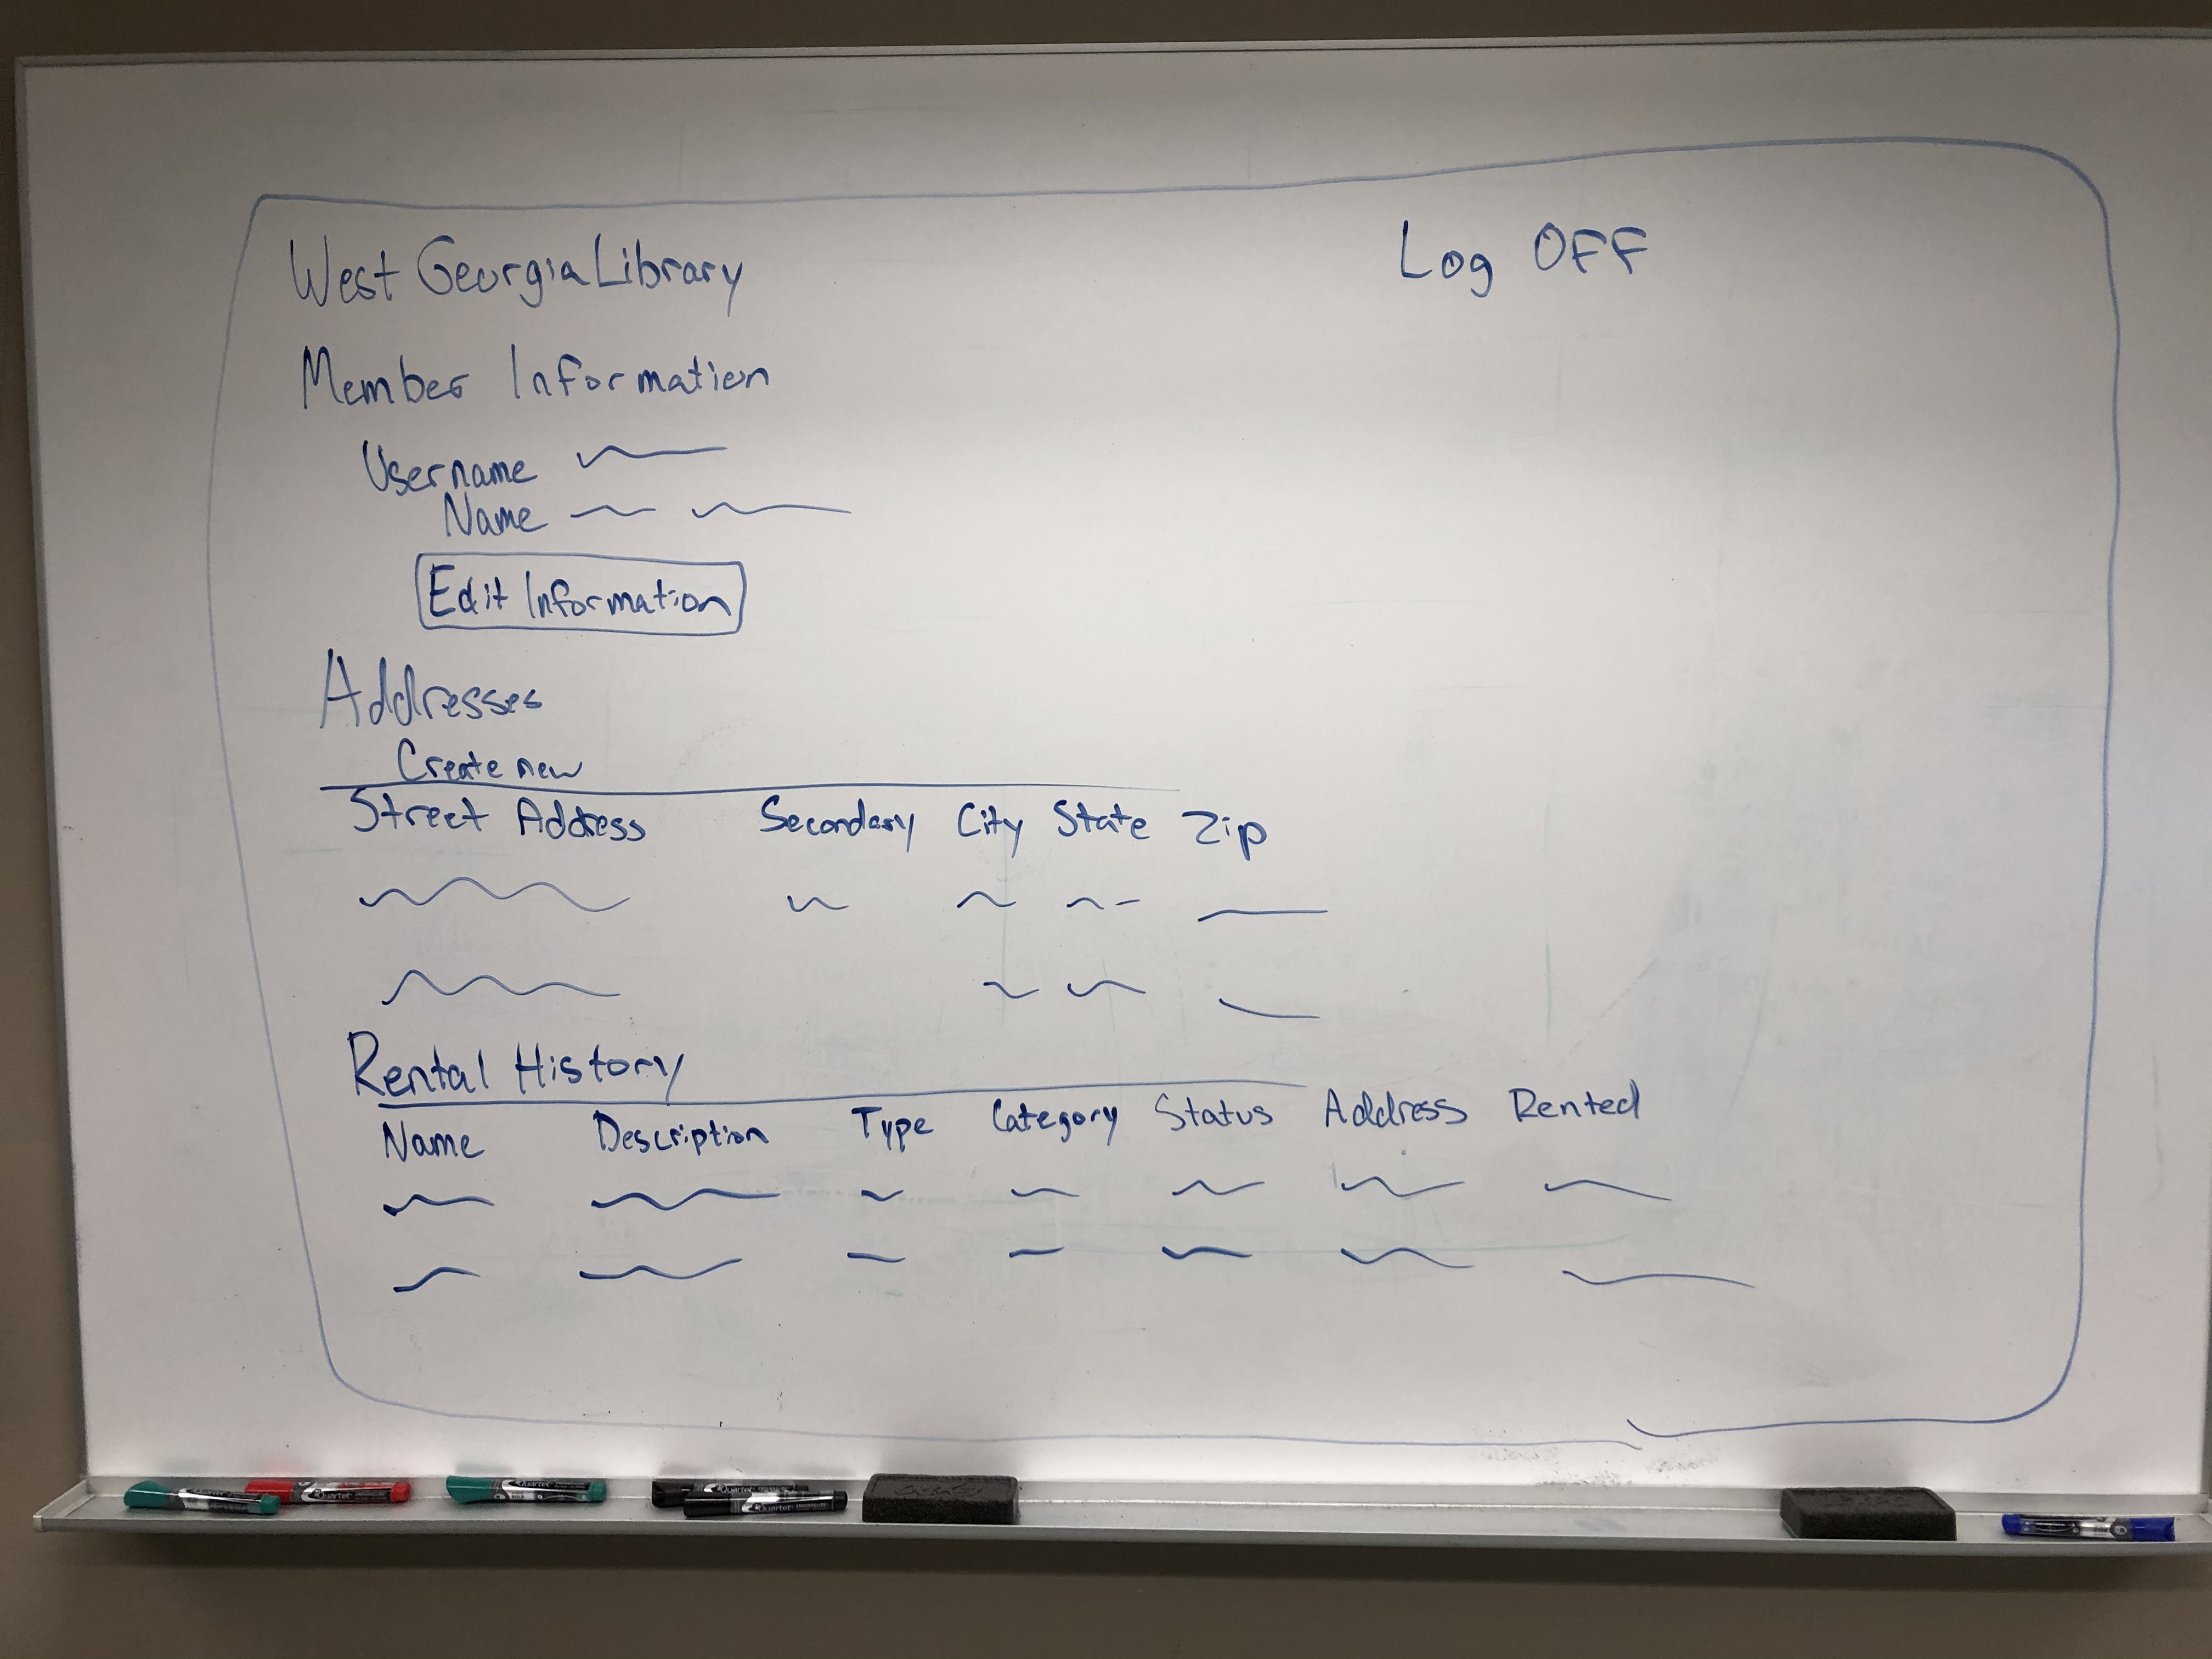 West Georgia Library Log OFF
Member Information
Username
Name
Edit Information
Addresses
Create new
Street Address Secondary City State Zip
Rental History
Name Description Type Category Status Address Rented
Quartet Quartet Quartet
Quartet